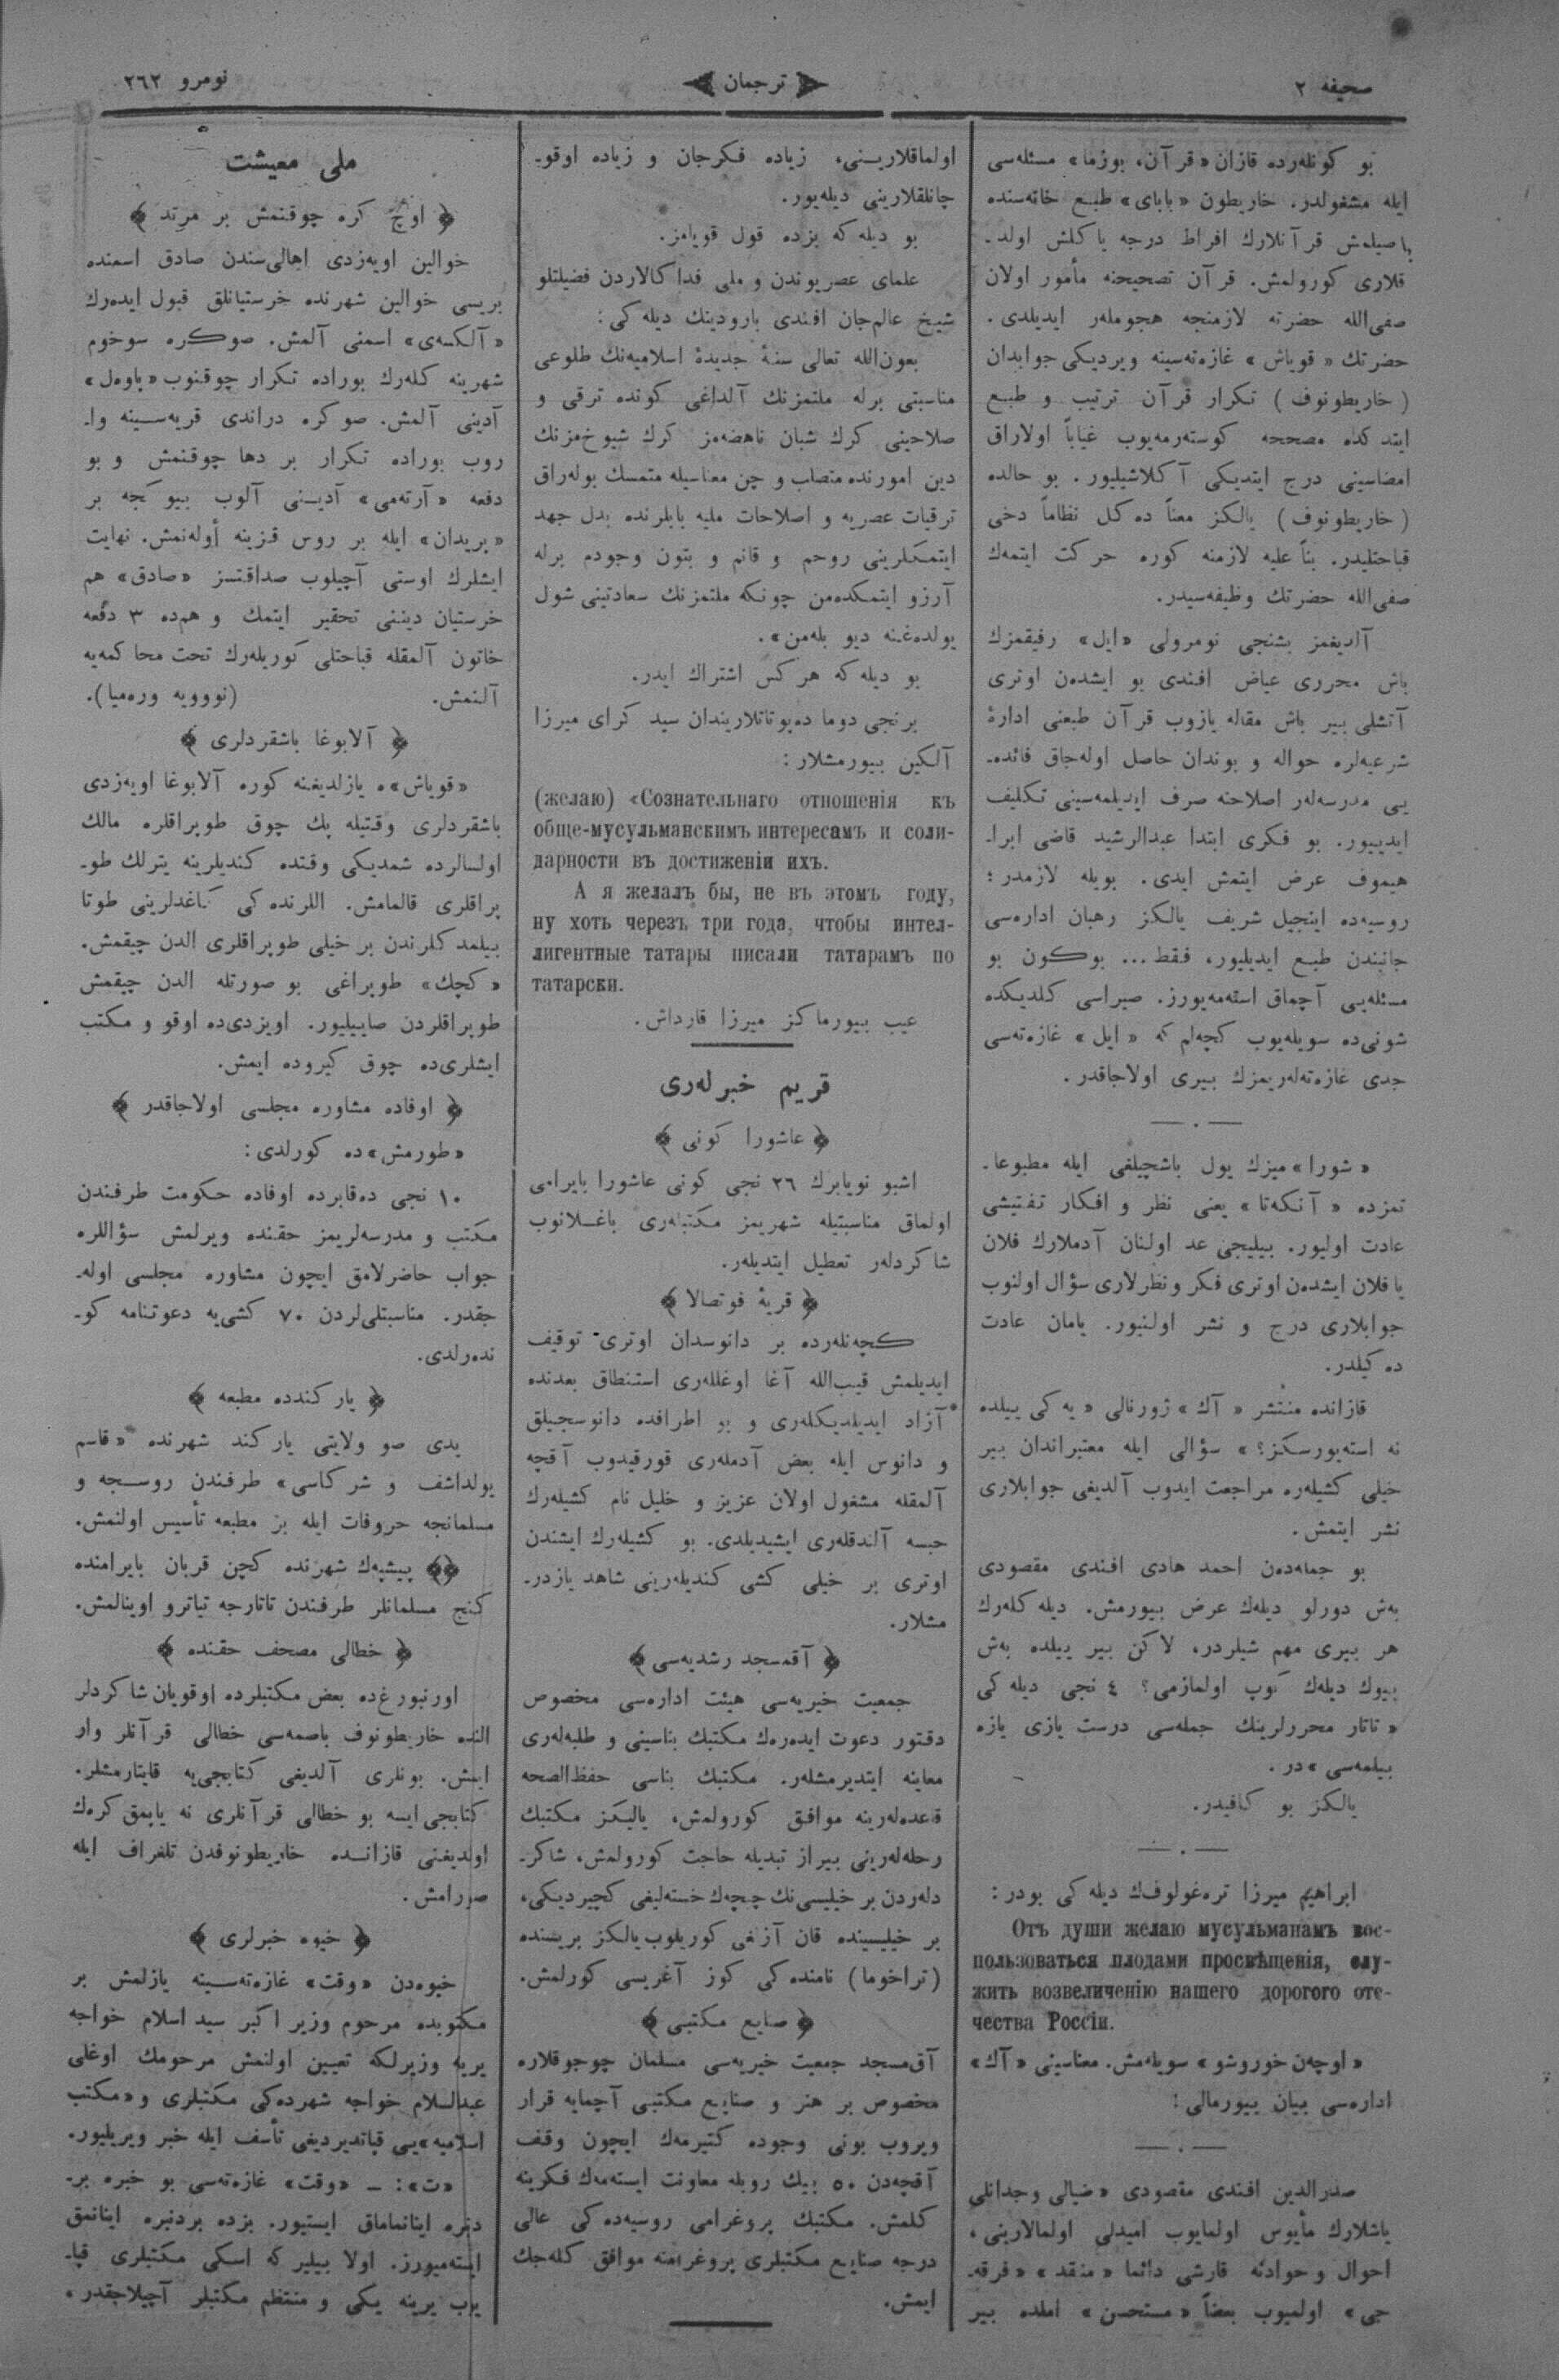 صحيفه ٢
ترجمان
نومرو ٢٦٢
بو كونلەرده قازان «قرآن، بوزما» مسئله‌سى
ايله مشغولدر. خاريطون «باباى» طبع خانه‌سنده
باصيلمش قرآنلارك افراط درجه ياكلش اولد-
قلارى كورولمش. قرآن تصحيحنه مأمور اولان
صفى‌الله حضرته لازمنجه هجوملەر ايديلدى.
حضرتك «قوياش» غازەته‌سينه ويرديكى جوابدان
(خاريطونوف) تكرار قرآن ترتيب و طبع
ايتدكده مصححه كوستەرمەيوب غياباً اولاراق
امضاسينى درج ايتديكى آكلاشيليور. بو حالده
(خاريطونوف) يالكز معناً دەكل نظاماً دخى
قباحتليدر. بناً عليه لازمنه كوره حركت ايتمەك
صفى‌الله حضرتك وظيفه‌سيدر.
آلديغمز بشنجى نومرولى «ايل» رفيقمزك
باش محررى عياض افندى بو ايشدەن اوترى
آتشلى بير باش مقاله يازوب قرآن طبعنى ادارۀ
شرعيه‌لره حواله و بوندان حاصل اولەجاق فائده-
يى مدرسه‌لەر اصلاحنه صرف ايديلمه‌سينى تكليف
ايدييور. بو فكرى ابتدا عبدالرشيد قاضى ابرا-
هيموف عرض ايتمش ايدى. بويله لازمدر؛
روسيه‌ده اينجيل شريف يالكز رهبان اداره‌سى
جانبندن طبع ايديليور، فقط... بوكون بو
مسئله‌يى آچماق استەمەيورز. صيراسى كلديكده
شونى‌ده سويلەيوب كچەلم كه «ايل» غازەته‌سى
جدى غازەتەلەريمزك بيرى اولاجاقدر.
«شورا» ميزك يول باشچيلغى ايله مطبوعا-
تمزده «آنكەتا» يعنى نظر و افكار تفتيشى
عادت اوليور. بيليجى عد اولنان آدملارك فلان
يا فلان ايشدەن اوترى فكر و نظرلارى سؤال اولنوب
جوابلارى درج و نشر اولنيور. يامان عادت
دەكيلدر.
قازانده منتشر «آك» ژورنالى «يه كى ييلده
نه استەيورسكز؟» سؤالى ايله معتبراندان بير
خيلى كشيلەره مراجعت ايدوب آلديغى جوابلارى
نشر ايتمش.
بو جملەدەن احمد هادى افندى مقصودى
بەش دورلو ديلەك عرض بيورمش. ديله كلەرك
هر بيرى مهم شيلردر، لاكن بير ييلده بەش
بيوك ديلەك كوپ اولمازمى؟ ٤ نجى ديله كى
«تاتار محررلرينك جمله‌سى درست يازى يازه
بيلمه‌سى» در.
يالكز بو كافيدر.
ابراهيم ميرزا ترەغولوفك ديله كى بودر:
Отъ души желаю мусульманамъ вос-
пользоваться плодами просвѣщенія, слу-
жить возвеличенію нашего дорогого оте-
чества Россіи.
«اوچەن خوروشو» سويلەمش. معناسينى «آك»
اداره‌سى بيان بيورمالى!
صدرالدين افندى مقصودى «ضيالى وجدانلى
ياشلارك مأيوس اولمايوب اميدلى اولمالارينى،
احوال و حوادثه قارشى دائما «منقد» «فرقه-
جى» اولميوب بعضاً «مستحسن» املده بير
اولماقلارينى، زياده فكرجان و زياده اوقو-
چانلقلارينى ديلەيور.
بو ديله كه بزده قول قويامز.
علماى عصريوندن و ملى فداكالاردن فضيلتلو
شيخ عالم‌جان افندى بارودينك ديله كى:
بعون‌الله تعالى سنۀ جديدۀ اسلاميه‌نك طلوعى
مناسبتى برله ملتمزنك آلداغى كونده ترقى و
صلاحينى كرك شبان ناهضه‌مز كرك شيوخ‌مزنك
دين امورنده متصاب و چن معناسيله متمسك بولەراق
ترقيات عصريه و اصلاحات مليه بابلرنده بدل جهد
ايتمكلرينى روحم و قانم و بتون وجودم برله
آرزو ايتمكدەمن چونكه ملتمزنك سعادتينى شول
يولدەغنه ديو بلەمن».
بو ديله كه هركس اشتراك ايدر.
برنجى دوما دەپوتاتلاريندان سيد كراى ميرزا
آلكين بيورمشلار:
(желаю) «Сознательнаго отношенія къ
обще-мусульманскимъ интересамъ и соли-
дарности въ достиженіи ихъ.
А я желалъ бы, не въ этомъ году,
ну хоть черезъ три года, чтобы интел-
лигентные татары писали татарамъ по
татарски.
عيب بيورماكز ميرزا قارداش.
قريم خبرلەرى
﴿ عاشورا كونى ﴾
اشبو نويابرك ٢٦ نجى كونى عاشورا بايرامى
اولماق مناسبتيله شهريمز مكتبلەرى باغلانوب
شاكردلەر تعطيل ايتديلەر.
﴿ قريۀ فوتصالا ﴾
كچەنلەرده بر دانوسدان اوترى توقيف
ايديلمش قيب‌الله آغا اوغللەرى استنطاق بعدنده
آزاد ايديلديكلەرى و بو اطرافده دانوسجيلق
و دانوس ايله بعض آدملەرى قورقيدوب آقچه
آلمقله مشغول اولان عزيز و خليل نام كشيلەرك
حبسه آلندقلەرى ايشيديلدى. بو كشيلەرك ايشندن
اوترى بر خيلى كشى كنديلەرينى شاهد يازدر-
مشلار.
﴿ آقمسجد رشديه‌سى ﴾
جمعيت خيريه‌سى هيئت اداره‌سى مخصوص
دقتور دعوت ايدەرەك مكتبك بناسينى و طلبه‌لەرى
معاينه ايتديرمشلەر. مكتبك بناسى حفظ‌الصحه
قاعده‌لەرينه موافق كورولمش، يالكز مكتبك
رحله‌لەرينى بيراز تبديله حاجت كورولمش، شاكر-
دلەردن بر خيليسى‌نك چيچەك خستەليغى كچيرديكى،
بر خيليسينده قان آزلغى كوريلوب يالكز بريسنده
(تراخوما) نامنده كى كوز آغريسى كورلمش.
﴿ صنايع مكتبى ﴾
آق‌مسجد جمعيت خيريه‌سى مسلمان چوجوقلاره
مخصوص بر هنر و صنايع مكتبى آچمايه قرار
ويروب بونى وجوده كتيرمەك ايچون وقف
آقچەدن ٥٠ بيك روبله معاونت ايستەمەك فكرينه
كلمش. مكتبك پروغرامى روسيه‌ده كى عالى
درجه صنايع مكتبلرى پروغرامنه موافق كلەجك
ايمش.
ملى معيشت
﴿ اوچ كره چوقنمش بر مرتد ﴾
خوالين اويەزدى اهالى‌سندن صادق اسمنده
بريسى خوالين شهرنده خرستيانلق قبول ايدەرك
«آلكسەى» اسمنى آلمش. صوكره سوخوم
شهرينه كلەرك بوراده تكرار چوقنوب «پاوەل»
آدينى آلمش. صوكره دراندى قريه‌سينه وا-
روب بوراده تكرار بر دها چوقنمش و بو
دفعه «آرتەمى» آدينى آلوب بيوكجه بر
«پريدان» ايله بر روس قزينه أولەنمش. نهايت
ايشلرك اوستى آچيلوب صداقتسز «صادق» هم
خرستيان ديننى تحقير ايتمك و هم‌ده ٣ دفعه
خاتون آلمقله قباحتلى كوريلەرك تحت محاكمه‌يه
آلنمش. (نوويه ورەميا).
﴿ آلابوغا باشقردلرى ﴾
«قوياش»ه يازلديغنه كوره آلابوغا اويەزدى
باشقردلرى وقتيله پك چوق طوپراقلره مالك
اولسالرده شمديكى وقتده كنديلرينه يترلك طو-
پراقلرى قالمامش. اللرنده كى كاغدلرينى طوتا
بيلمدكلرندن بر خيلى طوپراقلرى الدن چيقمش.
«كچك» طوپراغى بو صورتله الدن چيقمش
طوپراقلردن صاييليور. اويزدى‌ده اوقو و مكتب
ايشلرى‌ده چوق كيروده ايمش.
﴿ اوفاده مشاوره مجلسى اولاجاقدر ﴾
«طورمش»ده كورلدى:
١٠ نجى دەقابرده اوفاده حكومت طرفندن
مكتب و مدرسه‌لريمز حقنده ويرلمش سؤاللره
جواب حاضرلامق ايچون مشاوره مجلسى اوله-
جقدر. مناسبتلى‌لردن ٧٠ كشى‌يه دعوتنامه كو-
ندەرلدى.
﴿ ياركندده مطبعه ﴾
يدى صو ولايتى ياركند شهرنده «قاسم
يولداشف و شركاسى» طرفندن روسجه و
مسلمانجه حروفات ايله بر مطبعه تأسيس اولنمش.
﴿﴾ پيشپەك شهرنده كچن قربان بايرامنده
كنج مسلمانلر طرفندن تاتارجه تياترو اوينالمش.
﴿ خطالى مصحف حقنده ﴾
اورنبورغ‌ده بعض مكتبلرده اوقويان شاكردلر
النده خاريطونوف باصمه‌سى خطالى قرآنلر وار
ايمش. بونلرى آلديغى كتابجى‌يه قايتارمشلر.
كتابجى ايسه بو خطالى قرآنلرى نه ياپمق كرەك
اولديغنى قازانده خاريطونوفدن تلغراف ايله
صورامش.
﴿ خيوه خبرلرى ﴾
خيوه‌دن «وقت» غازەته‌سينه يازلمش بر
مكتوبده مرحوم وزير اكبر سيد اسلام خواجه
يريه وزيرلكه تعيين اولنمش مرحومك اوغلى
عبدالسلام خواجه شهرده‌كى مكتبلرى و «مكتب
اسلاميه»يى قپاتديرديغى تأسف ايله خبر ويريليور.
«ت»: – «وقت» غازەته‌سى بو خبره بر-
دنره اينانماماق ايستيور. بزده بردنبره اينانمق
ايستەميورز. اولا بيلير كه اسكى مكتبلرى قپا-
يوب يرينه يكى و منتظم مكتبلر آچيلاجقدر.